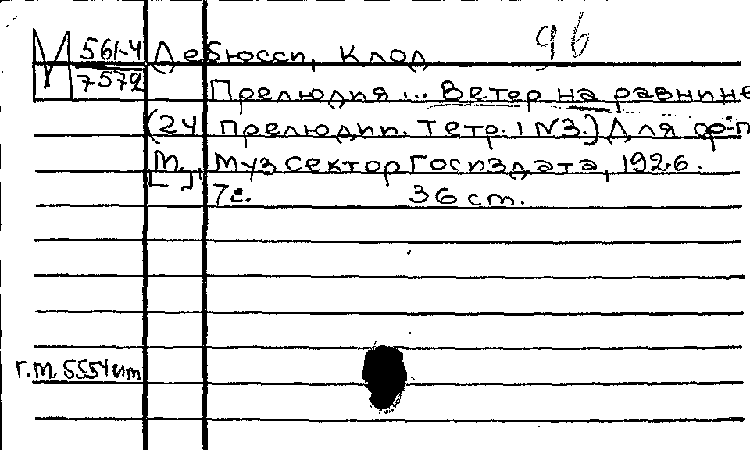 96
М 561-4 Дебюсси, Клод
7572 Прелюдия ... Ветер на равнине
(24 прелюдии. Тетр. 1 №3.) Для ф-п
М., Музсектор Госиздата, 1926.
[ ]
7с. 36 cm.
г.т. 5554